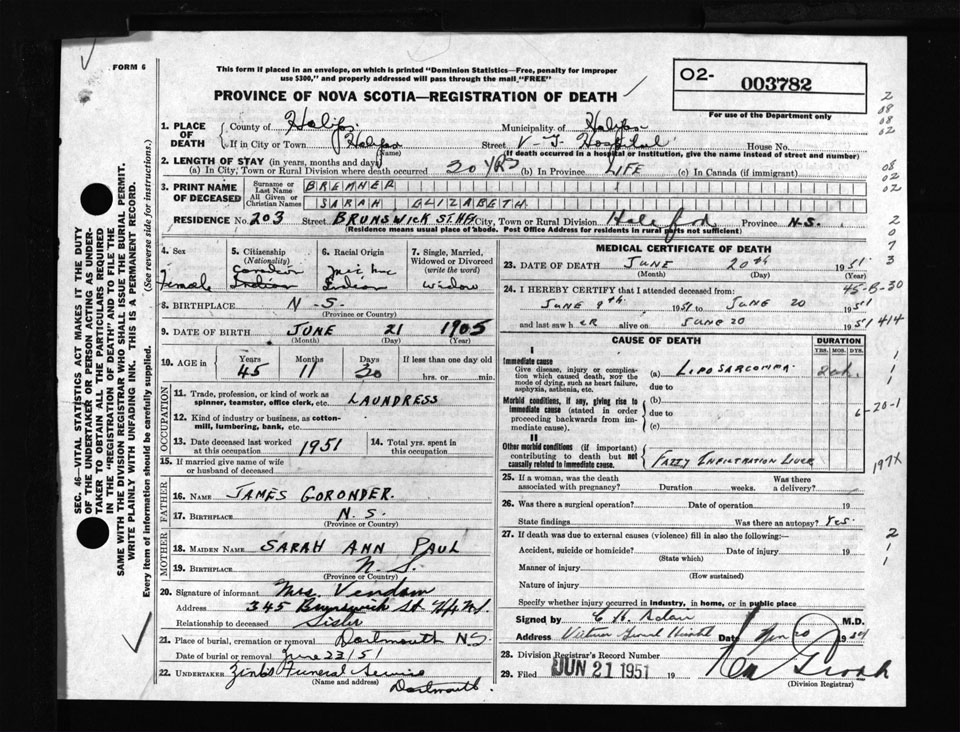 FORM 6
This form if placed in an envelope, on which is printed "Dominion Statistics—Free, penalty for improper
use $300," and properly addressed will pass through the mail, "FREE"
O2- 003782
For use of the Department only
PROVINCE OF NOVA SCOTIA—REGISTRATION OF DEATH
1. PLACE OF DEATH
County of Halifax Municipality of Halifax
If in City or Town Halifax Street V-G Hospital House No.
(Name) (If death occurred in a hospital or institution, give the name instead of street and number)
2. LENGTH OF STAY (in years, months and days)
(a) In City, Town or Rural Division where death occurred 20 YRS (b) In Province LIFE (c) In Canada (if immigrant)
3. PRINT NAME OF DECEASED
Surname or Last Name BREMNER
All Given or Christian Names SARAH ELIZABETH
RESIDENCE No. 203 Street BRUNSWICK ST. HFX City, Town or Rural Division Province N.S.
(Residence means usual place of abode. Post Office Address for residents in rural parts not sufficient)
4. Sex Female
5. Citizenship (Nationality) Indian
6. Racial Origin Indian
7. Single, Married, Widowed or Divorced (write the word) Widow
8. BIRTHPLACE N-S.
(Province or Country)
9. DATE OF BIRTH JUNE 21 1905
(Month) (Day) (Year)
10. AGE in Years 45 Months 11 Days 30 If less than one day old hrs. or min.
OCCUPATION
11. Trade, profession, or kind of work as spinner, teamster, office clerk, etc. LAUNDRESS
12. Kind of industry or business, as cotton-mill, lumbering, bank, etc.
13. Date deceased last worked at this occupation 1951
14. Total yrs. spent in this occupation
15. If married give name of wife or husband of deceased
FATHER
16. NAME JAMES GORONDER.
17. BIRTHPLACE N.S.
(Province or Country)
MOTHER
18. MAIDEN NAME SARAH ANN PAUL
19. BIRTHPLACE N.S.
(Province or Country)
20. Signature of informant Mrs. Vendom
Address 345 Brunswick St
Relationship to deceased Sister
21. Place of burial, cremation or removal Dartmouth NS
Date of burial or removal June 23/51
22. UNDERTAKER Zink's Funeral Service
(Name and address) Dartmouth.
MEDICAL CERTIFICATE OF DEATH
23. DATE OF DEATH JUNE 20th 1951
(Month) (Day) (Year)
24. I HEREBY CERTIFY that I attended deceased from: 45-B-30
JUNE 9th 1951 to JUNE 20 1951
and last saw h ER alive on JUNE 20 1951 414
CAUSE OF DEATH DURATION
YRS. MOS. DYS.
I
Immediate cause
Give disease, injury or complication which caused death, not the mode of dying, such as heart failure, asphyxia, asthenia, etc.
(a) LIPOSARCOMMA.
due to
Morbid conditions, if any, giving rise to immediate cause (stated in order proceeding backwards from immediate cause).
(b)
due to 6-20-1
(c)
II
Other morbid conditions (if important) contributing to death but not causally related to immediate cause.
FATTY INFILTRATION LIVER
197X
25. If a woman, was the death associated with pregnancy? Duration weeks. Was there a delivery?
26. Was there a surgical operation? Date of operation 19
State findings Was there an autopsy? Yes.
27. If death was due to external causes (violence) fill in also the following:—
Accident, suicide or homicide? Date of injury 19
(State which)
Manner of injury
(How sustained)
Nature of injury
Specify whether injury occurred in industry, in home, or in public place
Signed by M.D.
Address Date
28. Division Registrar's Record Number
29. Filed JUN 21 1951 19
(Division Registrar)
SEC. 46—VITAL STATISTICS ACT MAKES IT THE DUTY
OF THE UNDERTAKER OR PERSON ACTING AS UNDER-
TAKER TO OBTAIN ALL THE PARTICULARS REQUIRED
IN THE "REGISTRATION OF DEATH" AND TO FILE THE
SAME WITH THE DIVISION REGISTRAR WHO SHALL ISSUE THE BURIAL PERMIT.
WRITE PLAINLY WITH UNFADING INK. THIS IS A PERMANENT RECORD.
Every item of information should be carefully supplied. (See reverse side for instructions.)
2
08
08
02
08
02
02
2
0
7
3
1
1
1
2
1
1